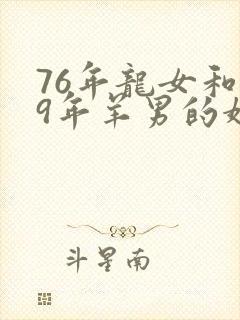 76年龍女和
9年羊男的
斗星南